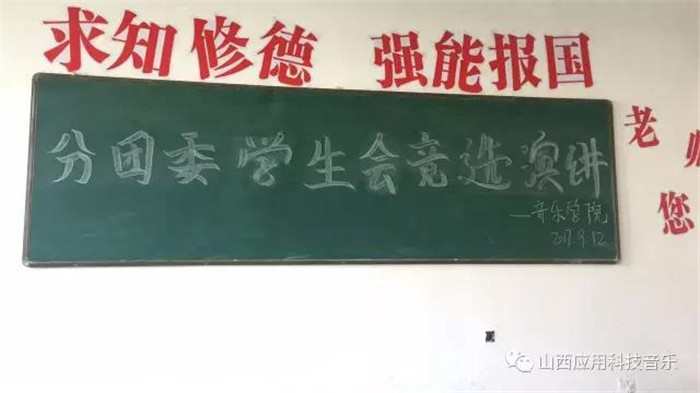 求知修德 强能报国
分团委学生会竞选演讲
—音乐学院
2017.9.12
老师
您
山西应用科技音乐